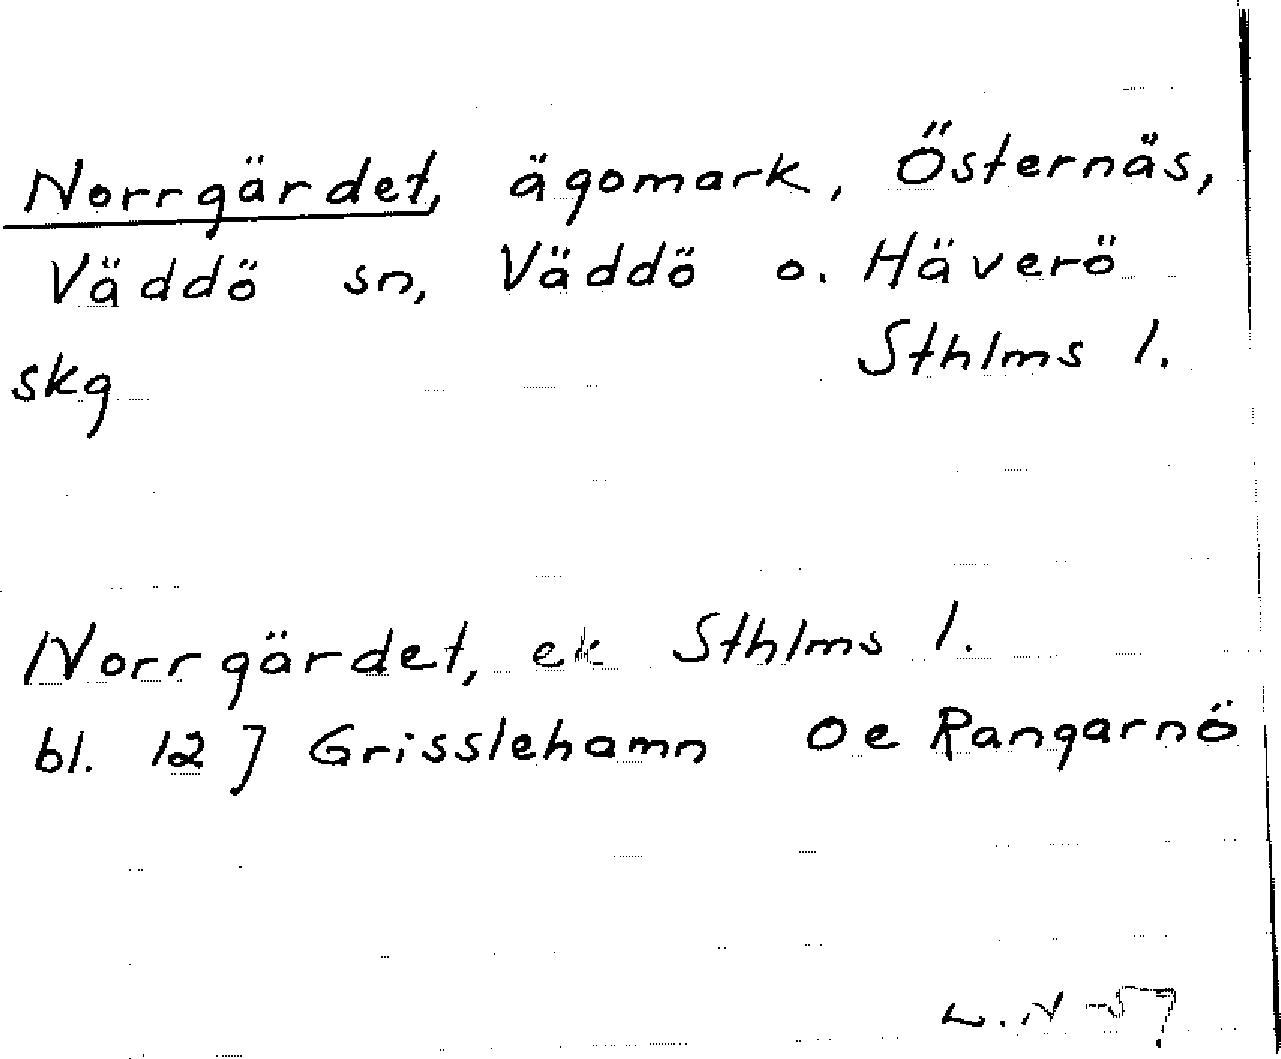 Norrgärdet, ägomark, Östernäs,
Väddö sn, Väddö o. Häverö
skg Sthlms l.
Norrgärdet, ek Sthlms l.
bl. 12 J Grisslehamn Oe Rangarnö
L.N -57